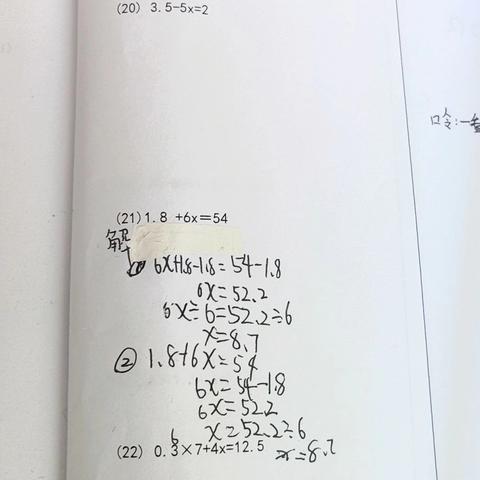 (20) 3.5-5x=2
(21) 1.8 +6x=54
解
① 6x+1.8-1.8=54-1.8
6x=52.2
6x÷6=52.2÷6
x=8.7
② 1.8+6x=54
6x=54-1.8
6x=52.2
x=52.2÷6
x=8.7
6
(22) 0.3×7+4x=12.5
口令:一